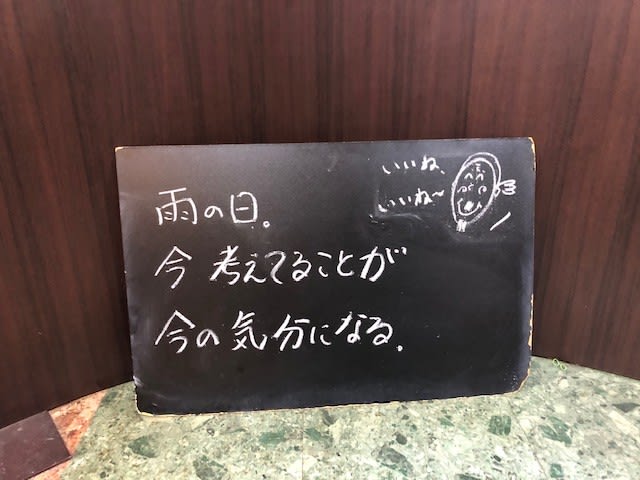 雨の日。
今 考えてることが
今の気分になる.
いいね、
いいね〜